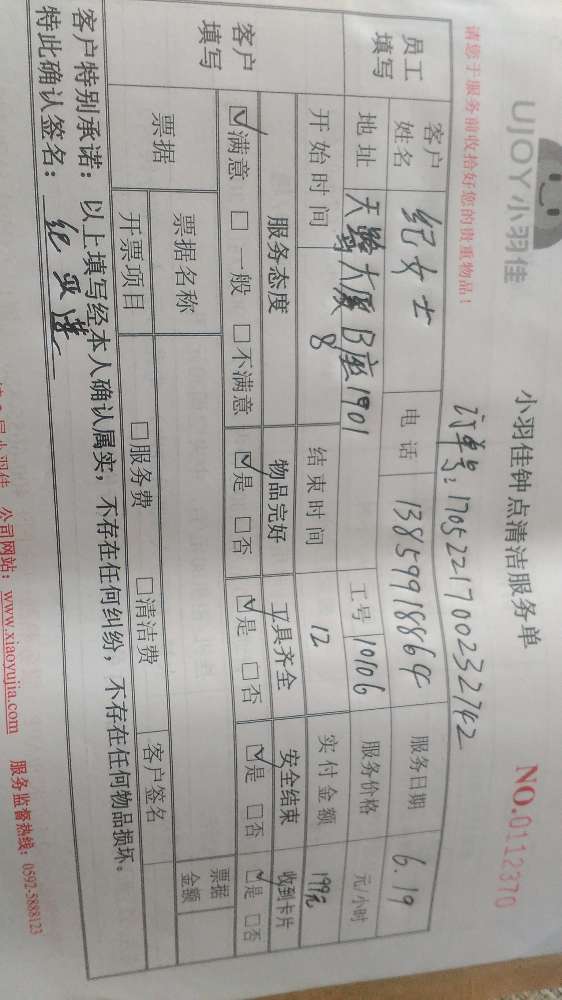 UJOY小羽佳
小羽佳钟点清洁服务单
NO.0112370
请您于服务前收拾好您的贵重物品！
订单号：1705221700232742
员工填写
客户姓名 纪女士 电话 13859918864 服务日期 6.19
地址 天鹭大厦B座1901 工号 10106 服务价格 元/小时
开始时间 8 结束时间 12 实付金额 199元
客户填写
服务态度 物品完好 工具齐全 安全结束 收到卡片
☑满意 □一般 □不满意 ☑是 □否 ☑是 □否 ☑是 □否 ☑是 □否
票据 票据名称 票据金额
开票项目 □服务费 □清洁费 客户签名
客户特别承诺：以上填写经本人确认属实，不存在任何纠纷，不存在任何物品损坏。
特此确认签名：纪
公司网站：www.xiaoyujia.com 服务监督热线：0592-5888123